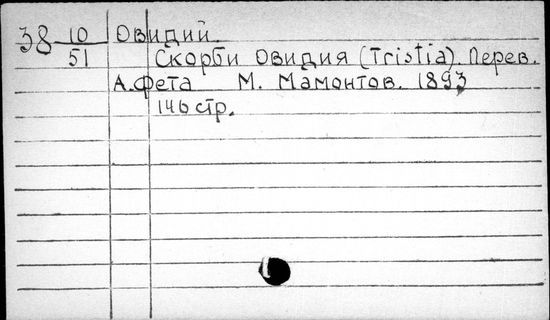 38 10/51 Овидий.
Скорби Овидия (Tristia). Перев.
А. Фета М. Мамонтов. 1893
146 стр.